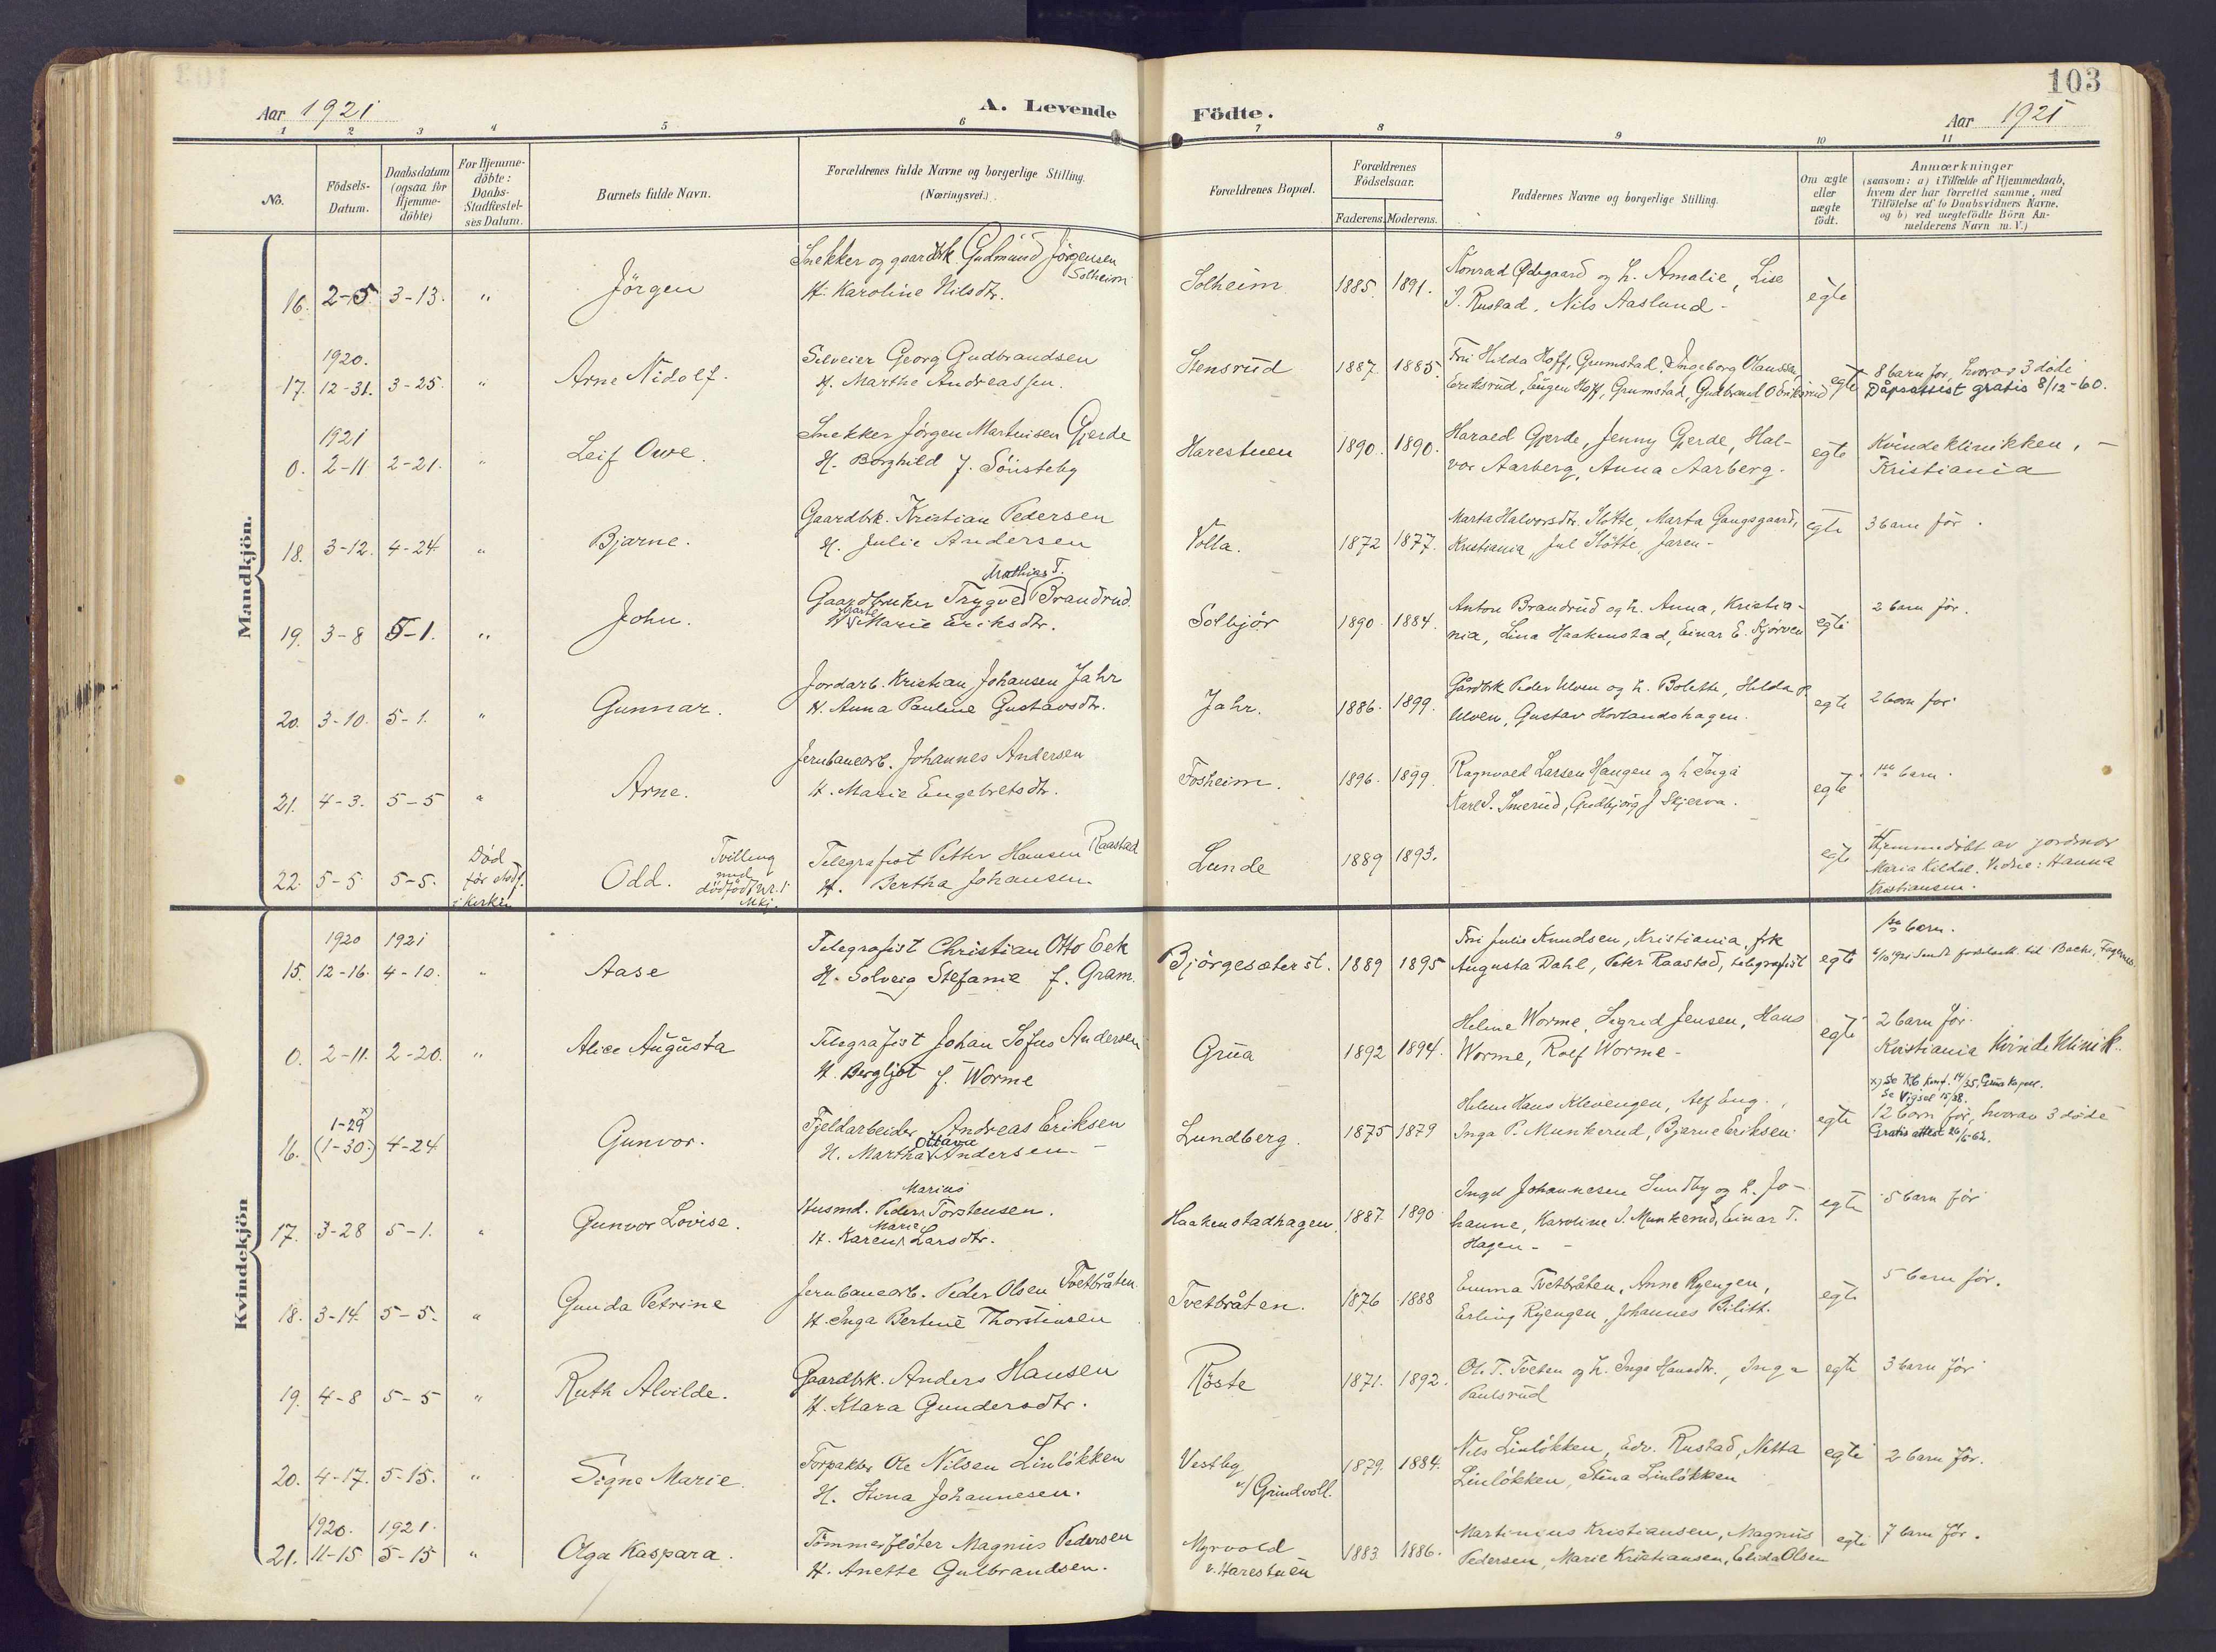 103
Aar 1921
A. Levende Födte.
Aar 1921
1 2 3 4 5 6 7 8 9 10 11
No.
Födsels-Datum.
Daabsdatum (ogsaa for Hjemme-döbte)
For Hjemme-döbte: Daabs-Stadfæstel-ses Datum.
Barnets fulde Navn.
Forældrenes fulde Navne og borgerlige Stilling. (Næringsvei.)
Forældrenes Bopæl.
Forældrenes Födselsaar.
Faderens. Moderens.
Faddernes Navne og borgerlige Stilling.
Om ægte eller uægte födt.
Anmærkninger
(saasom: a) i Tilfælde af Hjemmedaab, hvem der har forrettet samme, med Tilföielse af to Daabsvidners Navne. og b) ved uægtefödte Börn An-melderens Navn m. V.)
Mandkjön.
16. 2-5 3-13. " Jörgen
Snekker og gaardbk. Gudmund Jörgensen Solheim
H. Karoline Nilsdtr.
Solheim 1885. 1891.
Konrad Ødegaard og h. Amalie, Lise
J. Rustad, Nils Aaslund -
egte
1920.
17. 12-31. 3-25. " Arne Nidolf.
Georg Gudbrandsen
H. Marthe Andreassen.
Stensrud 1887. 1885.
Fru Hilda Hoff, Grumstad, Ingeborg Olaussen
Eriksrud, Eugen Hoff, Grumstad, Gudbrand O Eriksrud
egte
8 barn før, hvorav 3 döde
Dåpsattest gratis 8/12-60.
1921
0. 2-11 2-21. " Leif Owe.
Snekker Jörgen Martinsen Gjerde
H. Borghild f. Sönsteby
Harestuen 1890. 1890.
Harald Gjerde, Jenny Gjerde, Hal-
vor Aarberg, Anna Aarberg.
egte
Kvindeklinikken, -
Kristiania
18. 3-12. 4-24. " Bjarne.
Gaardbk. Kristian Pedersen
H. Julie Andersen
Volla. 1872 1877.
Marta Halvorsdtr. Slötte, Marta Gangsgaard,
Kristiania, Jul Slötte, Jaren -
egte
3 barn för.
19. 3-8 5-1. " John.
Mathias T.
Gaardbruker Trygve Brandrud.
Marte
H. Marie Eriksdtr.
Solbjör 1890. 1884.
Anton Brandrud og h. Anna, Kristia-
nia, Lina Haakenstad, Einar E. Kjörven
egte
2 barn för.
20. 3-10. 5-1. " Gunnar.
Jordarb. Kristian Johansen Jahr
H. Anna Pauline Gustavsdtr.
Jahr. 1886. 1899.
Gårdbk Peder Ulven og h. Bolette, Hilda P
Ulven, Gustav Hovlandshagen.
egte
2 barn för
21. 4-3. 5-5 " Arne.
Jernbanearb. Johannes Andersen
H. Marie Engebretsdtr.
Fosheim. 1896. 1899.
Ragnvald Larsen Haugen og h Inga
Karl J. Smerud, Gudbjörg J Skjerva.
egte
1ste barn.
22. 5-5 5-5.
Död
för stadf.
i kirken
Odd.
Tvilling
med
dödfödt Nr. 1
Mkj.
Telegrafist Petter Hansen Raastad
H. Bertha Johansen.
Lunde 1889 1893.
egte
Hjemmedöbt av jordmor
Maria Kildal. Vidne: Hanna
Kristiansen.
Kvindekjön
1920 1921
15. 12-16. 4-10. " Aase
Telegrafist Christian Otto Eek
H. Solveig Stefanie f. Gram.
Bjørgesæter st. 1889 1895
Fru Julie Knudsen, Kristiania, frk
Augusta Dahl, Peter Raastad, telegrafist
egte
1ste barn.
0. 2-11. 2-20. " Alice Augusta
Telegrafist Johan Sofus Andersen
H. Bergljot f. Worme
Grua 1892 1894.
Heline Worme, Sigrid Jensen, Hans
Worme, Rolf Worme -
egte
2 barn för.
Kristiania Kvinde Klinik.
1-29 x)
16. (1-30.) 4-24 Gunvor.
Fjeldarbeider Andreas Eriksen
Ottava
H. Martha Andersen -
Lundberg. 1875 1879
Helene Hans Klevengen, Alf Eng.,
Inga P. Munkerud, Bjarne Eriksen
egte
x) Se Kb. Konf. 14/35, Grua Kapel.
Se Vigsel 15/38.
12 barn för, hvorav 3 døde
Gratis attest 26/5 62.
17. 3-28 5-1. " Gunvor Lovise.
Marius
Husmd. Peder Torstensen.
Marie
H. Karen Larsdtr.
Haakenstadhagen 1887. 1890
Ingel Johannesen Sundby og h. Jo-
hanne, Karoline J. Munkerud, Einar T.
Hagen -
egte
5 barn för
18. 3-14. 5-5. " Gunda Petrine
Jernbanearb. Peder Olsen Tvetbråten
H. Inga Bertine Thorstensen
Tvetbråten. 1876 1888
Emma Tvetbråten, Anne Ryengen,
Erling Ryengen, Johannes Bilitt.
egte
5 barn för.
19. 4-8 5-5 " Ruth Alvilde.
Gaardbk. Anders Hansen
H. Klara Gundersdtr.
Röste 1871. 1892.
Ol. T. Tveten og h. Inga Hansdtr., Inga
Paulsrud
egte
3 barn för
20. 4-17. 5-15. " Signe Marie.
Forpakter Ole Nilsen Linlökken
H. Stena Johannesen.
Vestby
v/ Grindvoll. 1879. 1884.
Nils Linlökken, Edv. Rustad, Netta
Linlökken, Stina Linlökken
egte
2 barn för.
1920. 1921.
21. 11-15 5-15 " Olga Kaspara.
Tömmerflöter Magnus Pedersen
H. Anette Gulbrandsen.
Myrvold
v. Harestuen 1883 1886.
Martinius Kristiansen, Magnus
Pedersen, Marie Kristiansen, Elida Olsen
egte
7 barn för.